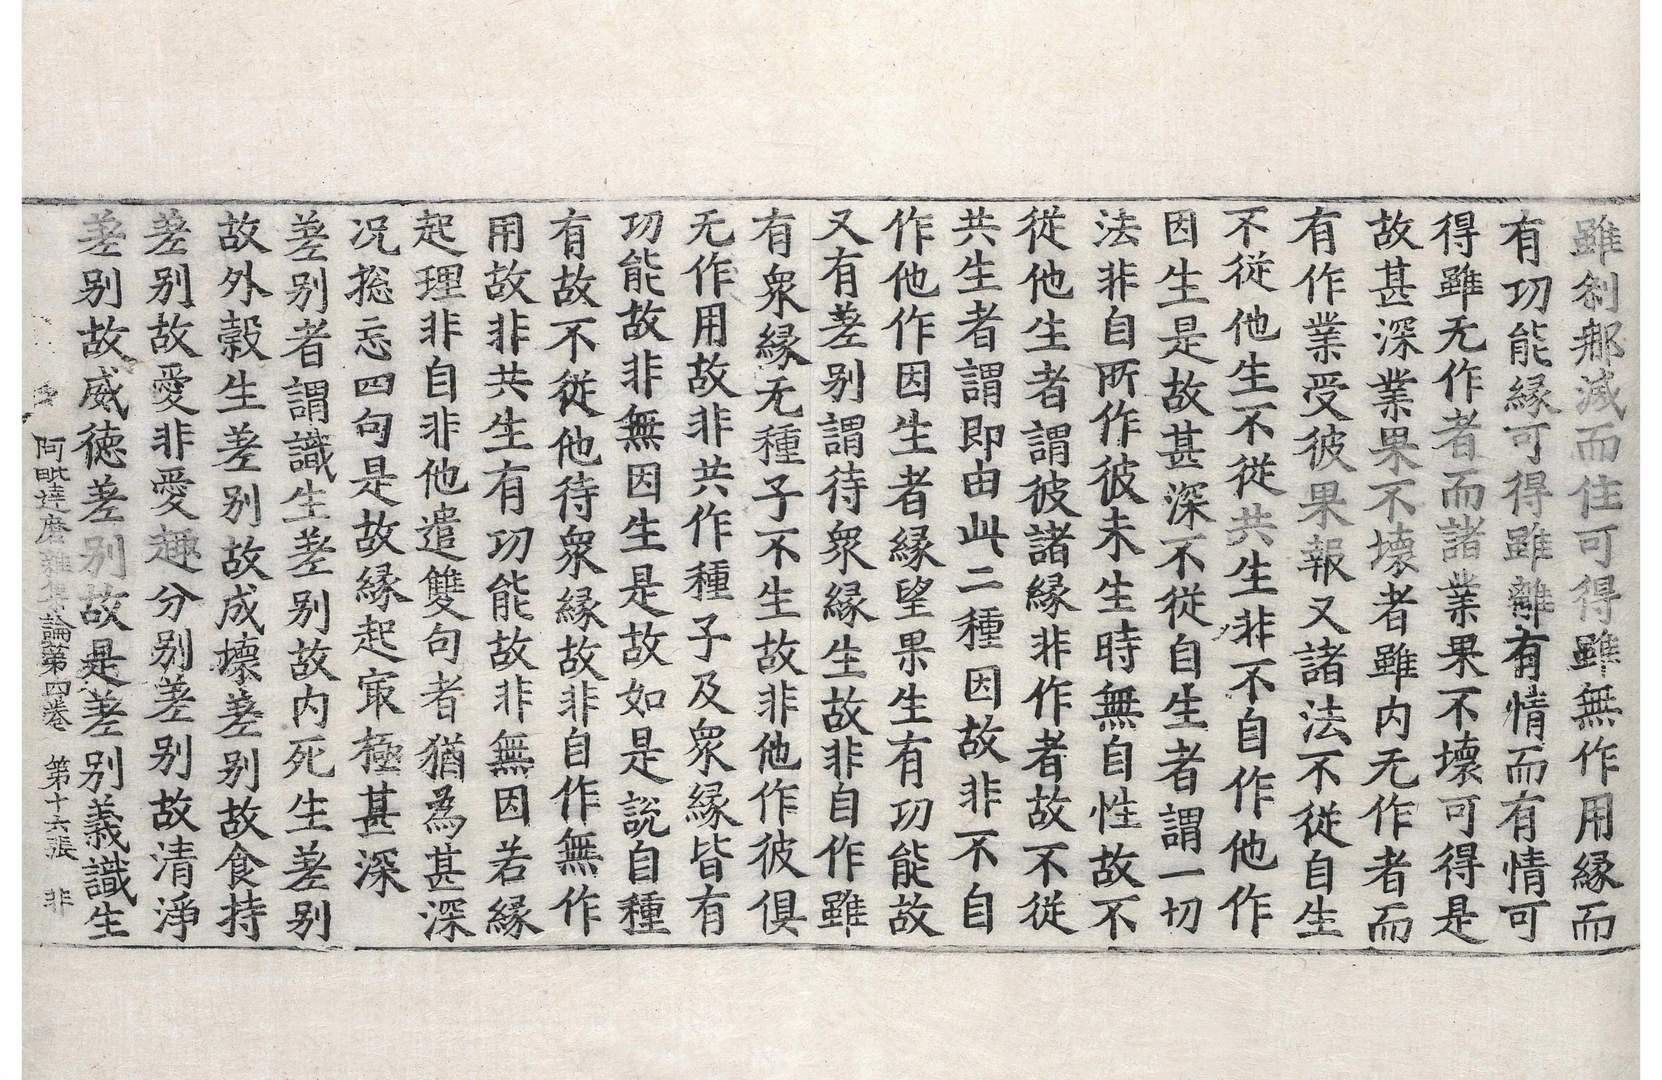 雖刹那滅而住可得雖無作用緣而
有功能緣可得雖離有情而有情可
得雖无作者而諸業果不壞可得是
故甚深業果不壞者雖内无作者而
有作業受彼果報又諸法不從自生
不從他生不從共生非不自作他作
因生是故甚深不從自生者謂一切
法非自所作彼未生時無自性故不
從他生者謂彼諸緣非作者故不從
共生者謂即由此二種因故非不自
作他作因生者緣望果生有功能故
又有差別謂待衆緣生故非自作雖
有衆緣无種子不生故非他作彼俱
无作用故非共作種子及衆緣皆有
功能故非無因生是故如是說自種
有故不從他待衆緣故非自作無作
用故非共生有功能故非無因若緣
起理非自非他遣雙句者猶為甚深
况揔忘四句是故緣起㝡極甚深
差別者謂識生差別故内死生差別
故外穀生差別故成壞差別故食持
差別故愛非愛趣分別差別故清淨
差別故威德差別故是差別義識生
阿毗達磨雜集論第四卷 第十六張 非